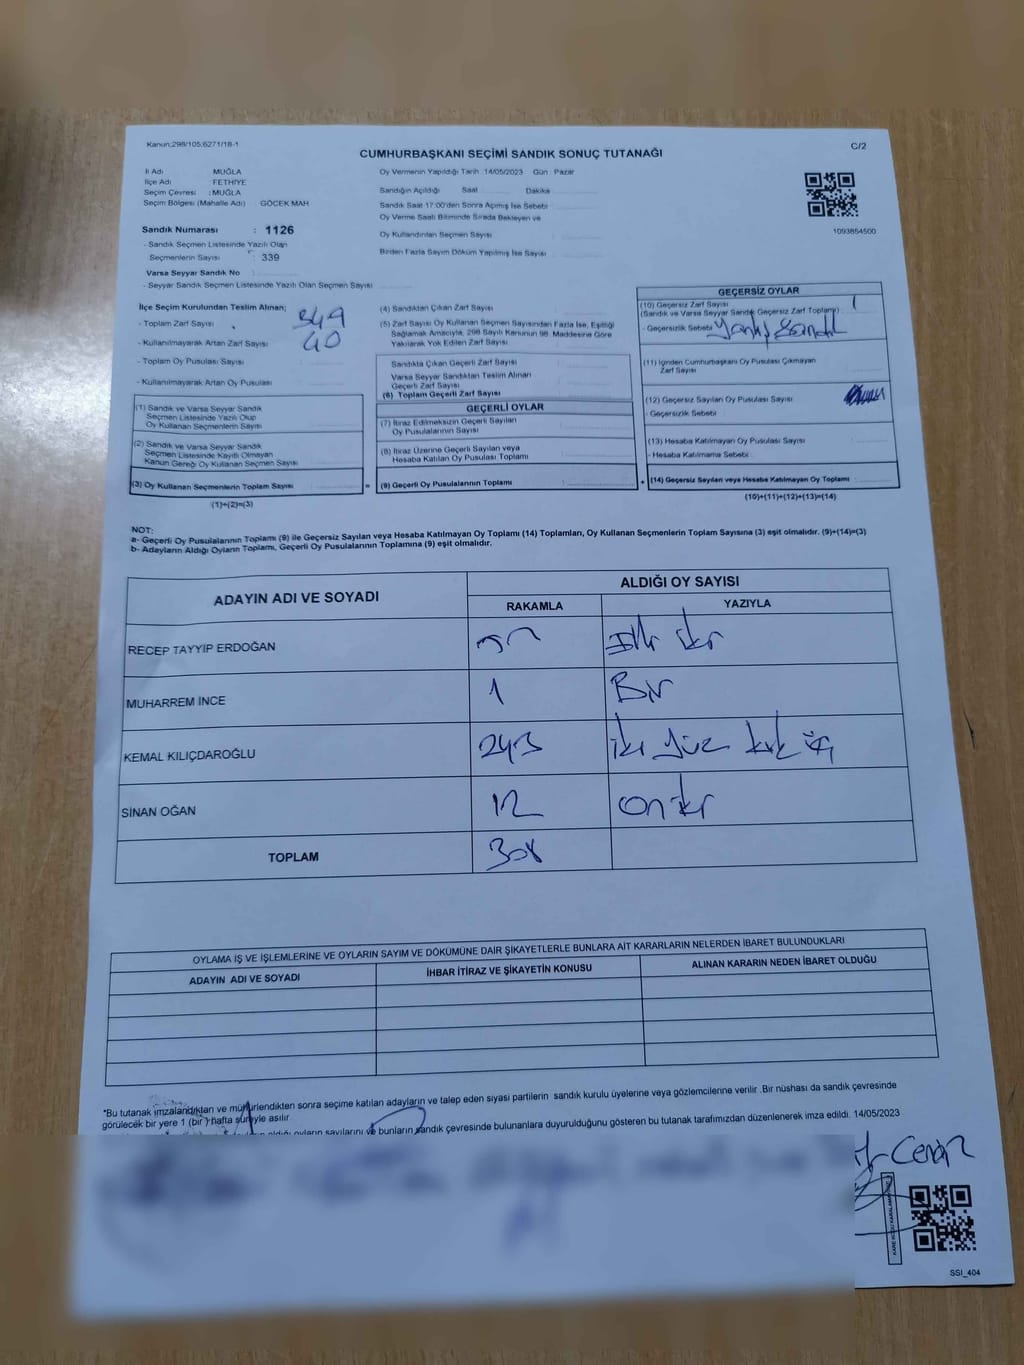 Kanun;298/105;6271/18-1
C/2
CUMHURBAŞKANI SEÇİMİ SANDIK SONUÇ TUTANAĞI
İl Adı MUĞLA
İlçe Adı FETHİYE
Seçim Çevresi : MUĞLA
Seçim Bölgesi (Mahalle Adı) : GÖCEK MAH
Sandık Numarası : 1126
- Sandık Seçmen Listesinde Yazılı Olan
Seçmenlerin Sayısı : 339
Varsa Seyyar Sandık No :
- Seyyar Sandık Seçmen Listesinde Yazılı Olan Seçmen Sayısı
Oy Vermenin Yapıldığı Tarih 14/05/2023 Gün Pazar
Sandığın Açıldığı Saat Dakika
Sandık Saat 17:00'den Sonra Açımış İse Sebebi
Oy Verme Saati Bitiminde Sırada Bekleyen ve
Oy Kullandırılan Seçmen Sayısı
Birden Fazla Sayım Döküm Yapılmış İse Sayısı
1093854500
İlçe Seçim Kurulundan Teslim Alınan;
- Toplam Zarf Sayısı 349
- Kullanılmayarak Artan Zarf Sayısı 40
- Toplam Oy Pusulası Sayısı
- Kullanılmayarak Artan Oy Pusulası
(1) Sandık ve Varsa Seyyar Sandık
Seçmen Listesinde Yazılı Olup
Oy Kullanan Seçmenlerin Sayısı
(2) Sandık ve Varsa Seyyar Sandık
Seçmen Listesinde Kayıtlı Olmayan
Kanun Gereği Oy Kullanan Seçmen Sayısı
(3) Oy Kullanan Seçmenlerin Toplam Sayısı
(1)+(2)=(3)
(4) Sandıktan Çıkan Zarf Sayısı
(5) Zarf Sayısı Oy Kullanan Seçmen Sayısından Fazla İse, Eşitliği
Sağlamak Amacıyla, 298 Sayılı Kanunun 98. Maddesine Göre
Yakılarak Yok Edilen Zarf Sayısı
Sandıkta Çıkan Geçerli Zarf Sayısı
Varsa Seyyar Sandıktan Teslim Alınan
Geçerli Zarf Sayısı
(6) Toplam Geçerli Zarf Sayısı
GEÇERLİ OYLAR
(7) İtiraz Edilmeksizin Geçerli Sayılan
Oy Pusulalarının Sayısı
(8) İtiraz Üzerine Geçerli Sayılan veya
Hesaba Katılan Oy Pusulası Toplamı
= (9) Geçerli Oy Pusulalarının Toplamı
GEÇERSİZ OYLAR
(10) Geçersiz Zarf Sayısı 1
(Sandık ve Varsa Seyyar Sandık Geçersiz Zarf Toplamı)
- Geçersizlik Sebebi Yanlış Sandık
(11) İçinden Cumhurbaşkanı Oy Pusulası Çıkmayan
Zarf Sayısı
(12) Geçersiz Sayılan Oy Pusulası Sayısı
- Geçersizlik Sebebi
(13) Hesaba Katılmayan Oy Pusulası Sayısı
- Hesaba Katılmama Sebebi
+ (14) Geçersiz Sayılan veya Hesaba Katılmayan Oy Toplamı
(10)+(11)+(12)+(13)=(14)
NOT:
a- Geçerli Oy Pusulalarının Toplamı (9) ile Geçersiz Sayılan veya Hesaba Katılmayan Oy Toplamı (14) Toplamları, Oy Kullanan Seçmenlerin Toplam Sayısına (3) eşit olmalıdır. (9)+(14)=(3)
b- Adayların Aldığı Oyların Toplamı, Geçerli Oy Pusulalarının Toplamına (9) eşit olmalıdır.
ADAYIN ADI VE SOYADI
ALDIĞI OY SAYISI
RAKAMLA YAZIYLA
RECEP TAYYİP ERDOĞAN 52 Elli iki
MUHARREM İNCE 1 Bir
KEMAL KILIÇDAROĞLU 243 iki yüz kırk üç
SİNAN OĞAN 12 on iki
TOPLAM 308
OYLAMA İŞ VE İŞLEMLERİNE VE OYLARIN SAYIM VE DÖKÜMÜNE DAİR ŞİKAYETLERLE BUNLARA AİT KARARLARIN NELERDEN İBARET BULUNDUKLARI
ADAYIN ADI VE SOYADI İHBAR İTİRAZ VE ŞİKAYETİN KONUSU ALINAN KARARIN NEDEN İBARET OLDUĞU
*Bu tutanak imzalandıktan ve mühürlendikten sonra seçime katılan adayların ve talep eden siyasi partilerin sandık kurulu üyelerine veya gözlemcilerine verilir .Bir nüshası da sandık çevresinde
görülecek bir yere 1 (bir ) hafta süreyle asılır.
aldığı oyların sayılarını ve bunların sandık çevresinde bulunanlara duyurulduğunu gösteren bu tutanak tarafımızdan düzenlenerek imza edildi. 14/05/2023
SSI_404